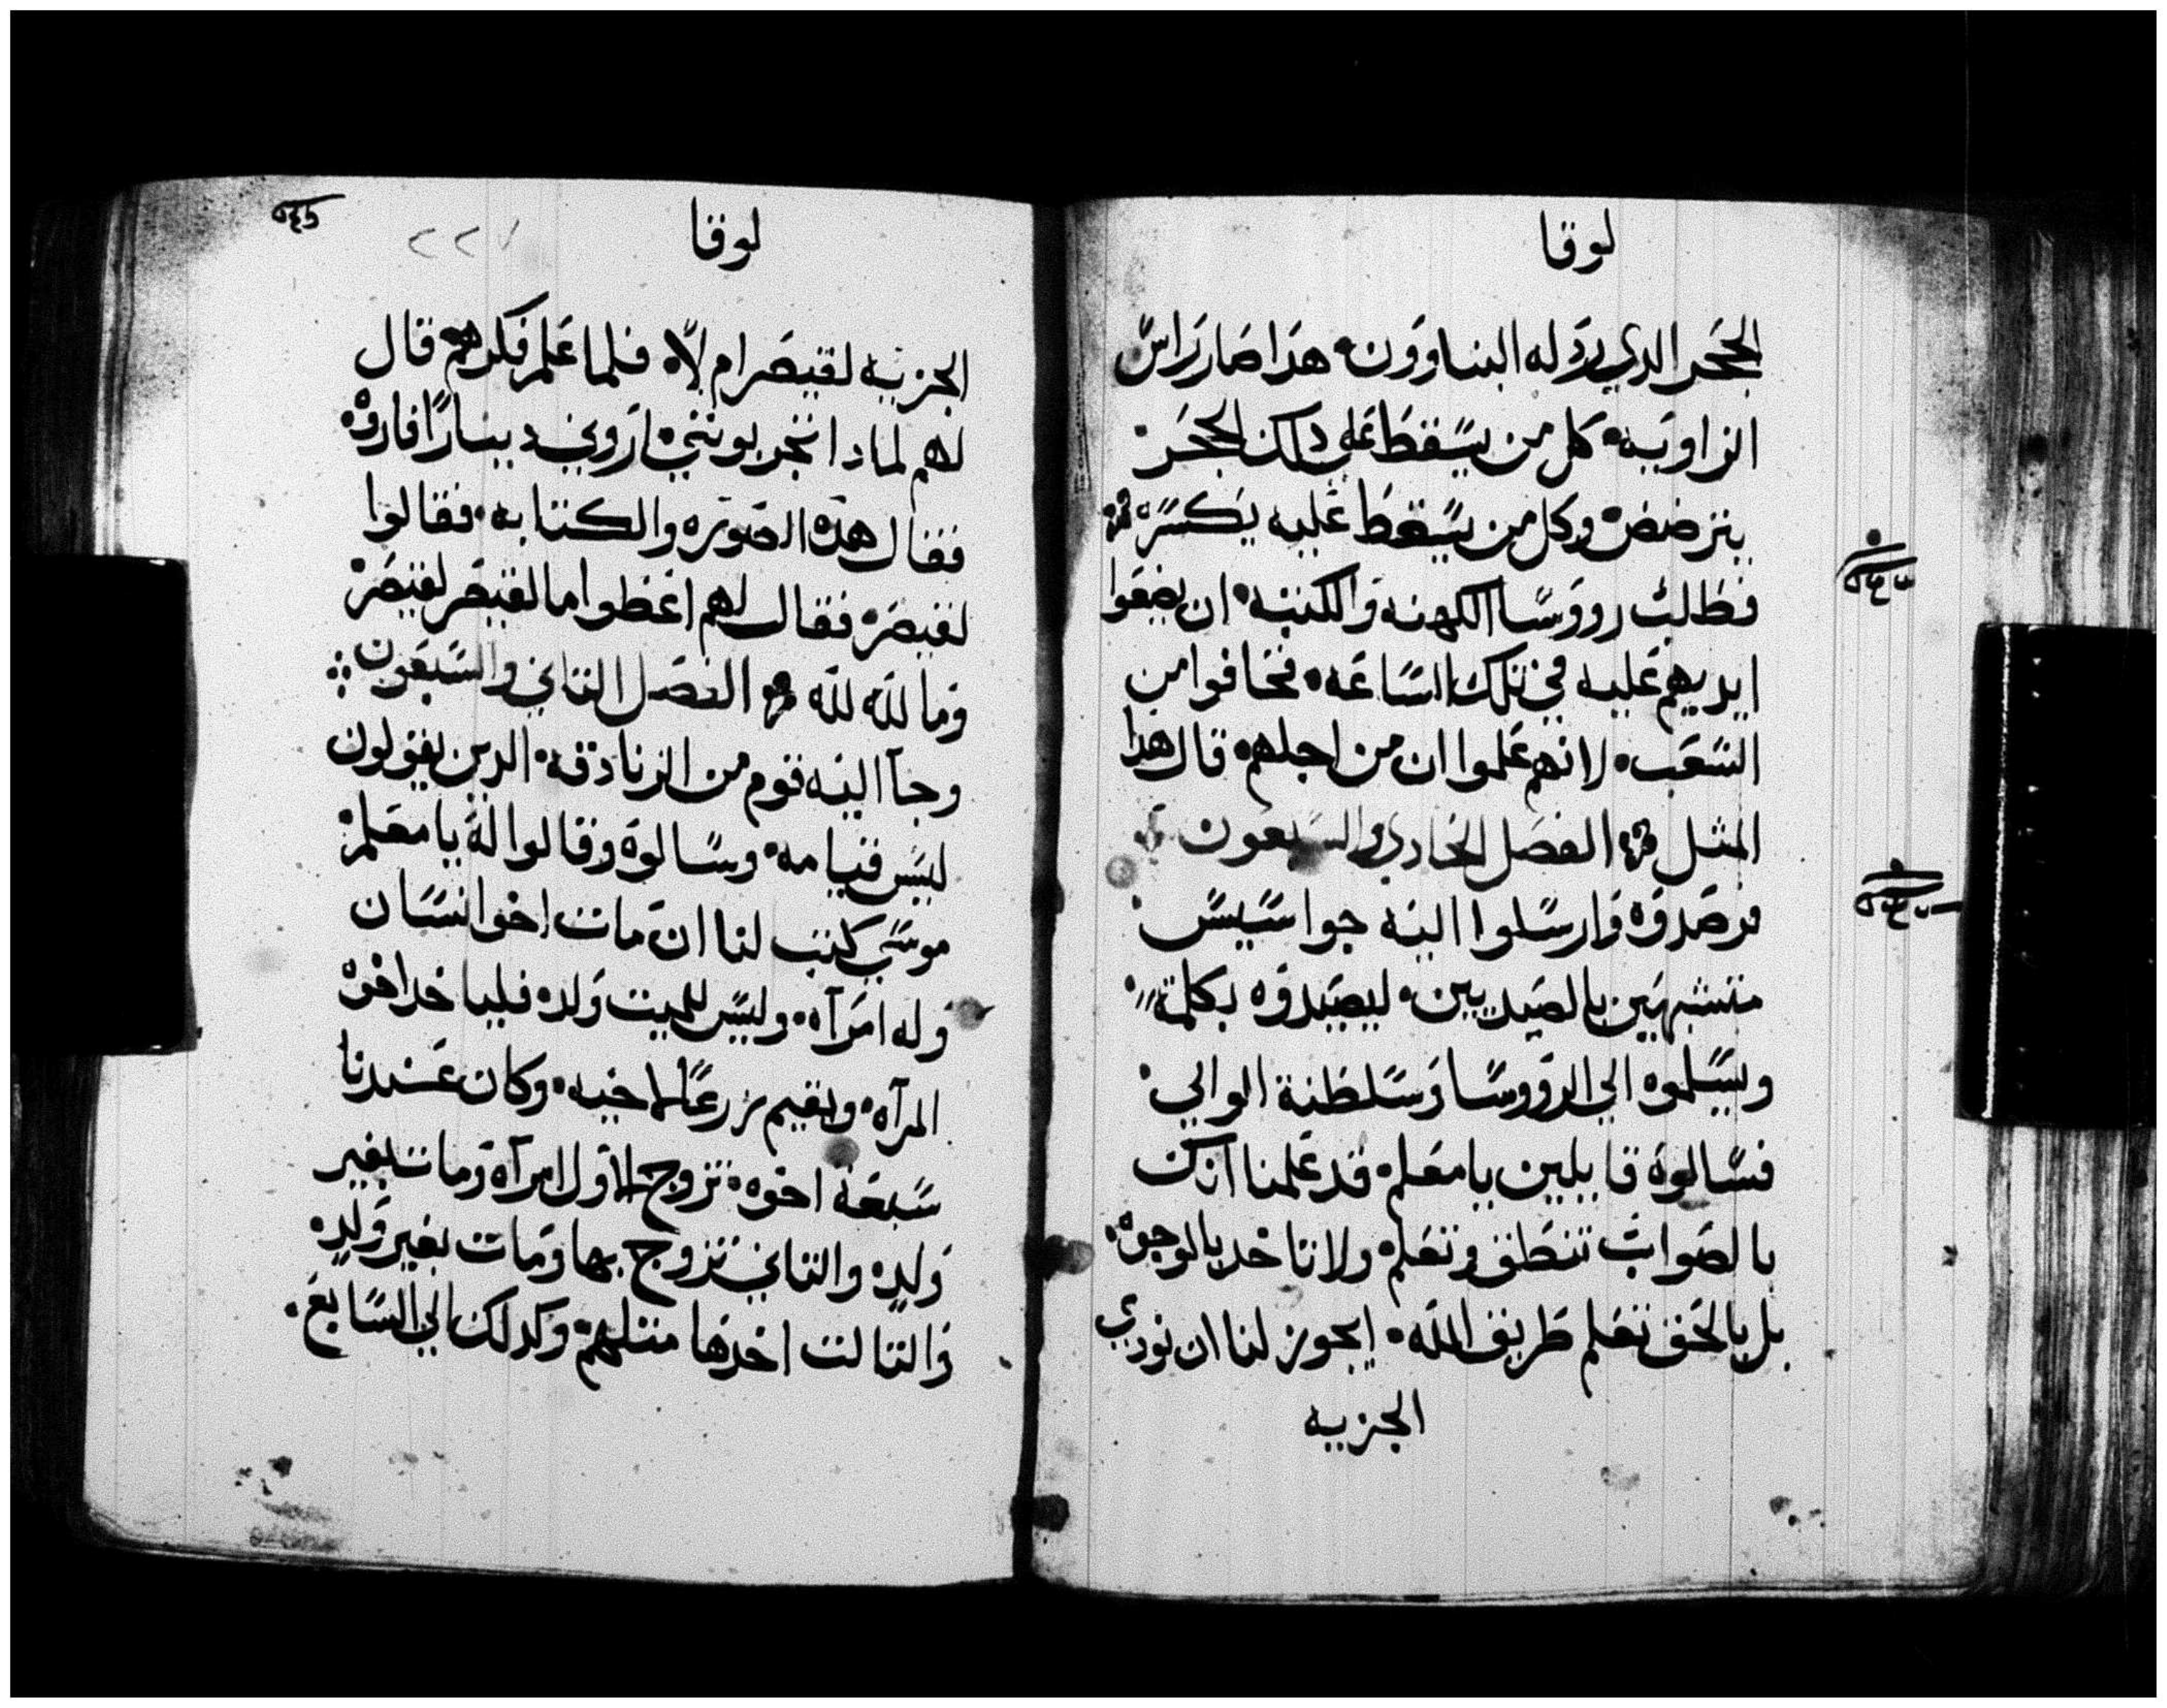 لوقا
الحجر الدي ردله البناوون هدا صار راس
الزاويه كل من يسقط علي دلك الحجر
يترضض وكل من يسقط عليه يكسره
فطلب رووسا الكهنه والكتبه ان يضعوا
ايديهم عليه في تلك الساعه فخافوا من
الشعب لانهم علموا ان من اجلهم قال هدا
المثل الفصل الحادي والسبعون
فرصدوه وارسلوا اليه جواسيس
متشبهين بالصديين ليصيدوه بكلمة
ويسلموه الي الرووسا وسلطنة الوالي
فسالوه قايلين يا معلم قد علمنا انك
بالصواب تنطق وتعلم ولا تاخد بالوجوه
بل بالحق تعلم طريق الله ايجوز لنا ان نودي
الجزيه
لوقا
٢٢٧
الجزيه لقيصر ام لا فلما علم فكرهم قال
لهم لمادا تجربونني اروني دينارا فاروه
فقال هده الصوره والكتابه فقالوا
لقيصر فقال لهم اعطوا ما لقيصر لقيصر
وما لله لله الفصل التاني والسبعون
وجآ اليه قوم من الزنادقه الدين يقولون
ليس قيامه وسالوه وقالوا له يا معلم
موسي كتب لنا ان مات اخو انسان
وله امرآه وليس للميت ولد فلياخد اخوه
المرآه ويقيم زرعا لاخيه وكان عندنا
سبعة اخوه تزوج الاول امرآة ومات بغير
ولد والتاني تزوج بها ومات بغير ولد
والتالت اخدها متلهم وكدلك الي السابع